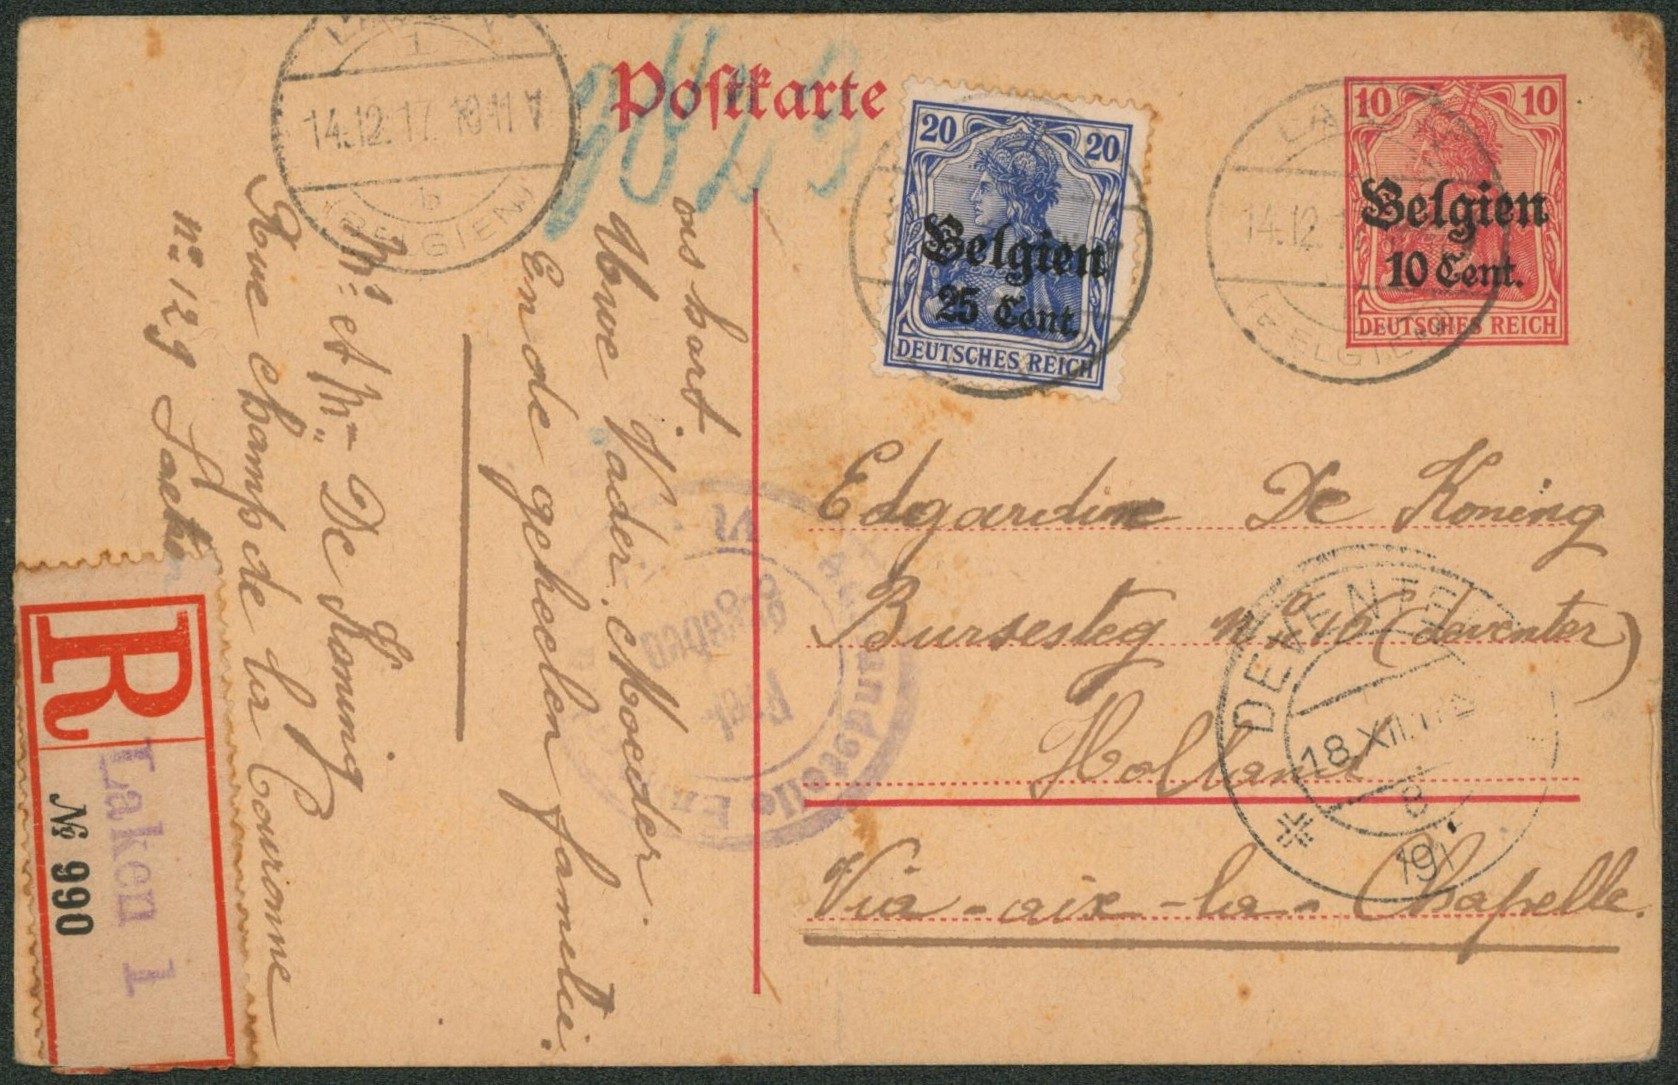 Postkarte
14.12.17. 10-11 V
b
(BELGIEN)
9823
20 20
Belgien
25 Cent.
DEUTSCHES REICH
10 10
Belgien
10 Cent.
DEUTSCHES REICH
14.12.1
(BELGIEN)
Edgardine De Koning
Bursesteg nº 16 (deventer)
Holland
Via - aix - la - Chapelle.
DEVENTER
18.XII.17
191
ons hart
Uwe Vader. Moeder.
En de geheelen familie.
Mr et Mme De Koning
Rue Champ de la Couronne
nº 129 Laeken
R
Laken 1
№ 990
Freigegeben